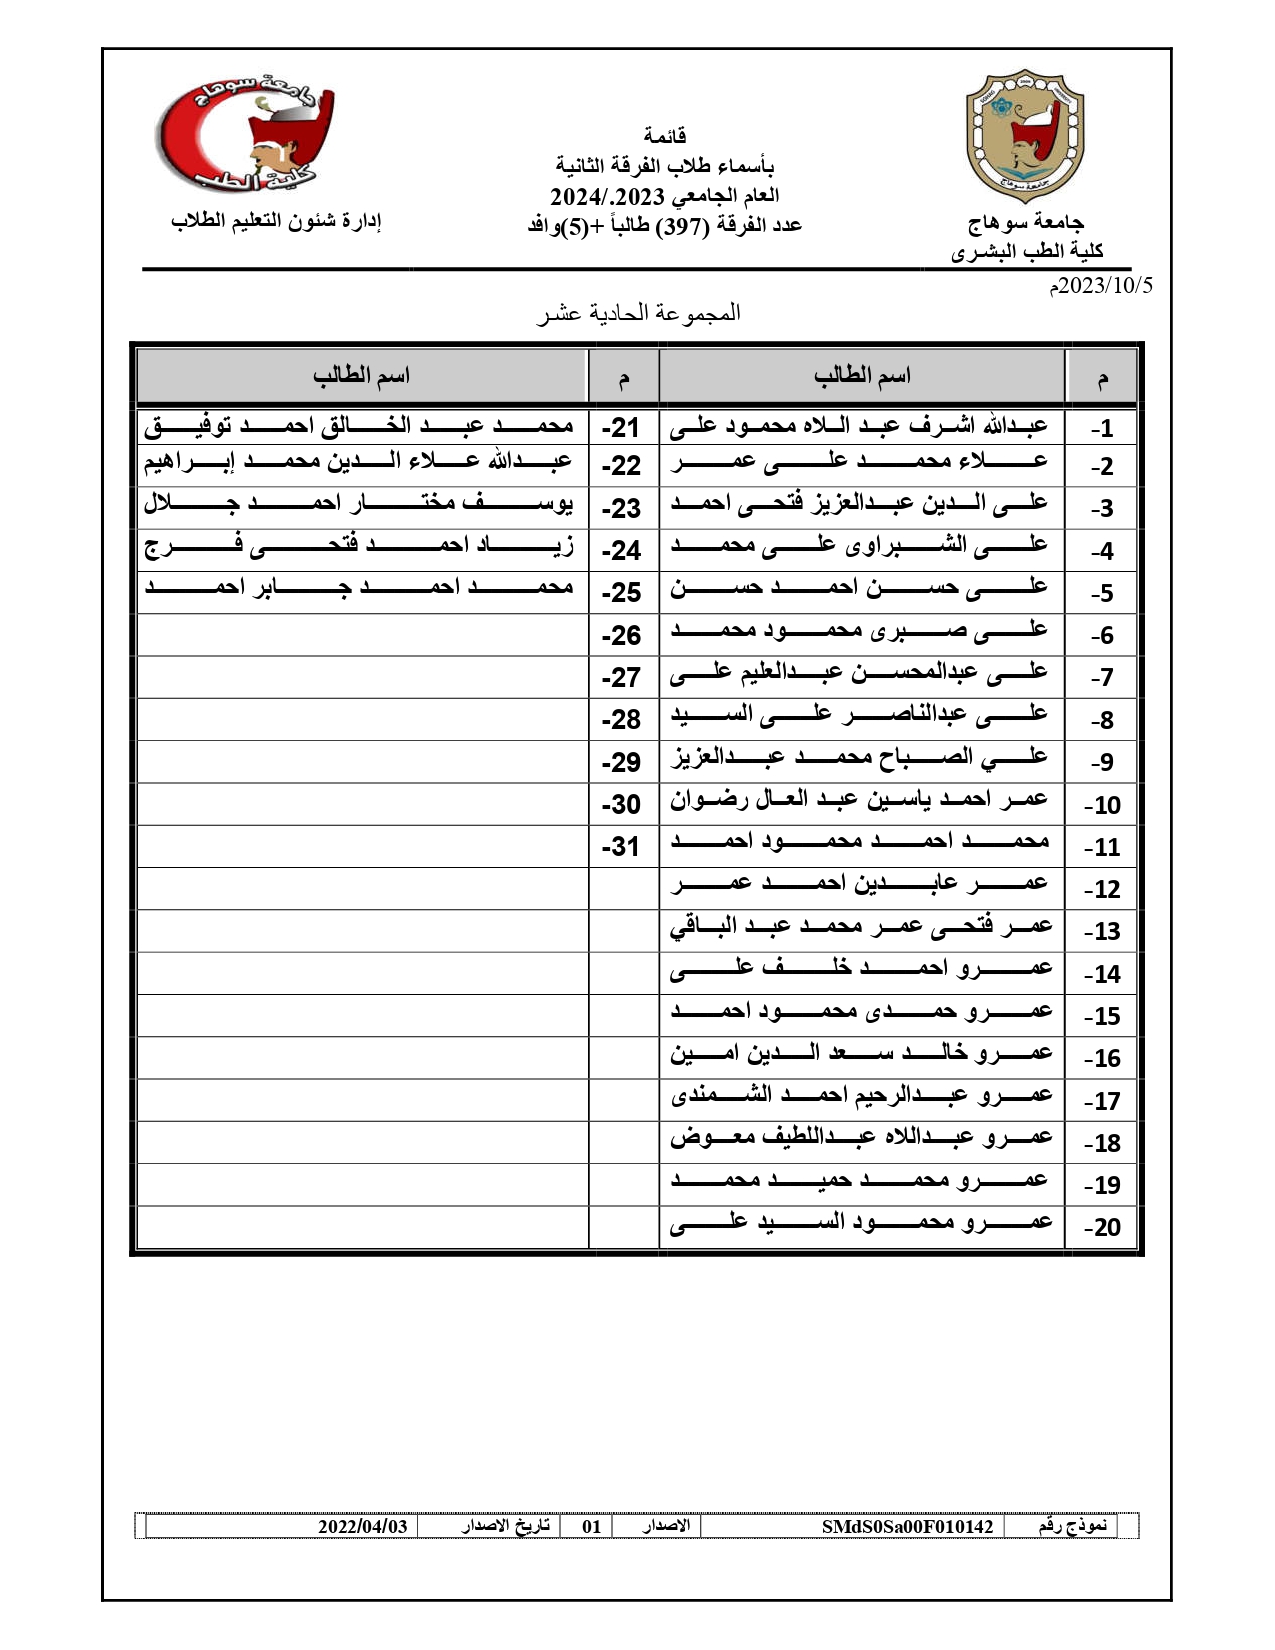 جامعة سوهاج
كلية الطب
SOHAG UNIVERSITY
جامعة سوهاج
قائمة
بأسماء طلاب الفرقة الثانية
العام الجامعي 2023./2024
عدد الفرقة (397) طالباً +(5)وافد
جامعة سوهاج
كلية الطب البشرى
إدارة شئون التعليم الطلاب
2023/10/5م
المجموعة الحادية عشر
م اسم الطالب م اسم الطالب
1- عبدالله اشرف عبد اللاه محمود على 21- محمد عبد الخالق احمد توفيق
2- علاء محمد على عمر 22- عبدالله علاء الدين محمد إبراهيم
3- على الدين عبدالعزيز فتحى احمد 23- يوسف مختار احمد جلال
4- على الشبراوى على محمد 24- زياد احمد فتحى فرج
5- على حسن احمد حسن 25- محمد احمد جابر احمد
6- على صبرى محمود محمد 26-
7- على عبدالمحسن عبدالعليم على 27-
8- على عبدالناصر على السيد 28-
9- علي الصباح محمد عبدالعزيز 29-
10- عمر احمد ياسين عبد العال رضوان 30-
11- محمد احمد محمود احمد 31-
12- عمر عابدين احمد عمر
13- عمر فتحى عمر محمد عبد الباقي
14- عمرو احمد خلف على
15- عمرو حمدى محمود احمد
16- عمرو خالد سعد الدين امين
17- عمرو عبدالرحيم احمد الشمندى
18- عمرو عبداللاه عبداللطيف معوض
19- عمرو محمد حميد محمد
20- عمرو محمود السيد على
نموذج رقم SMdS0Sa00F010142 الاصدار 01 تاريخ الاصدار 2022/04/03